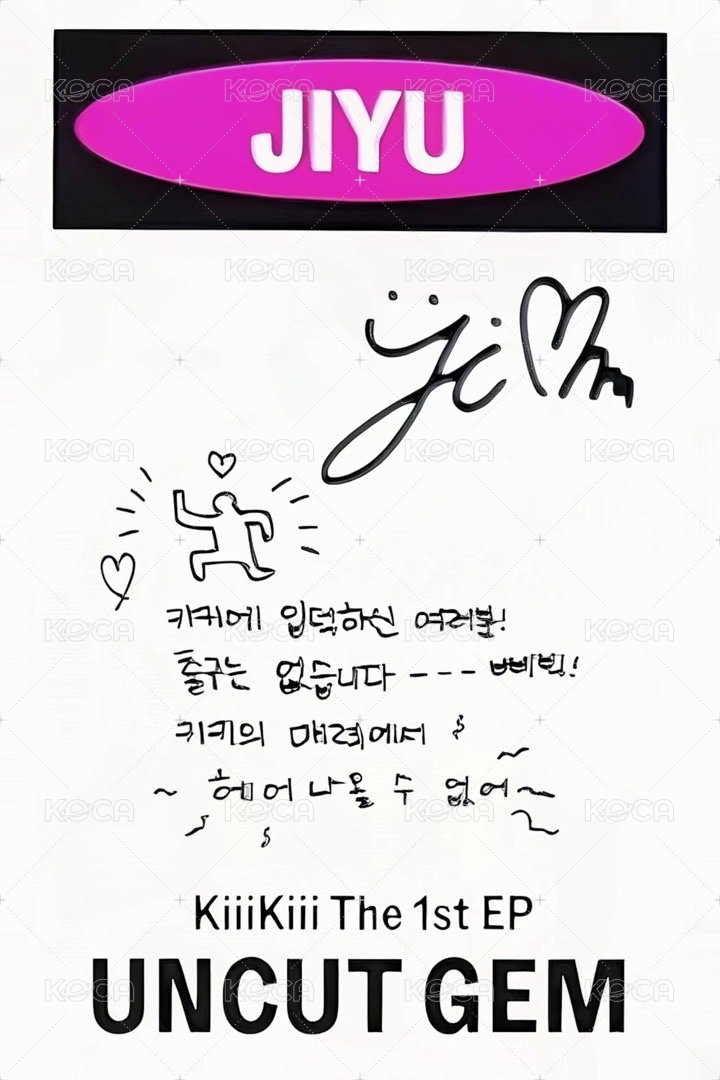 JIYU
키키에 입덕하신 여러분!
출구는 없습니다 --- 삐빅!
키키의 매력에서
~ 헤어나올 수 없어~
KiiiKiii The 1st EP
UNCUT GEM
KOCA